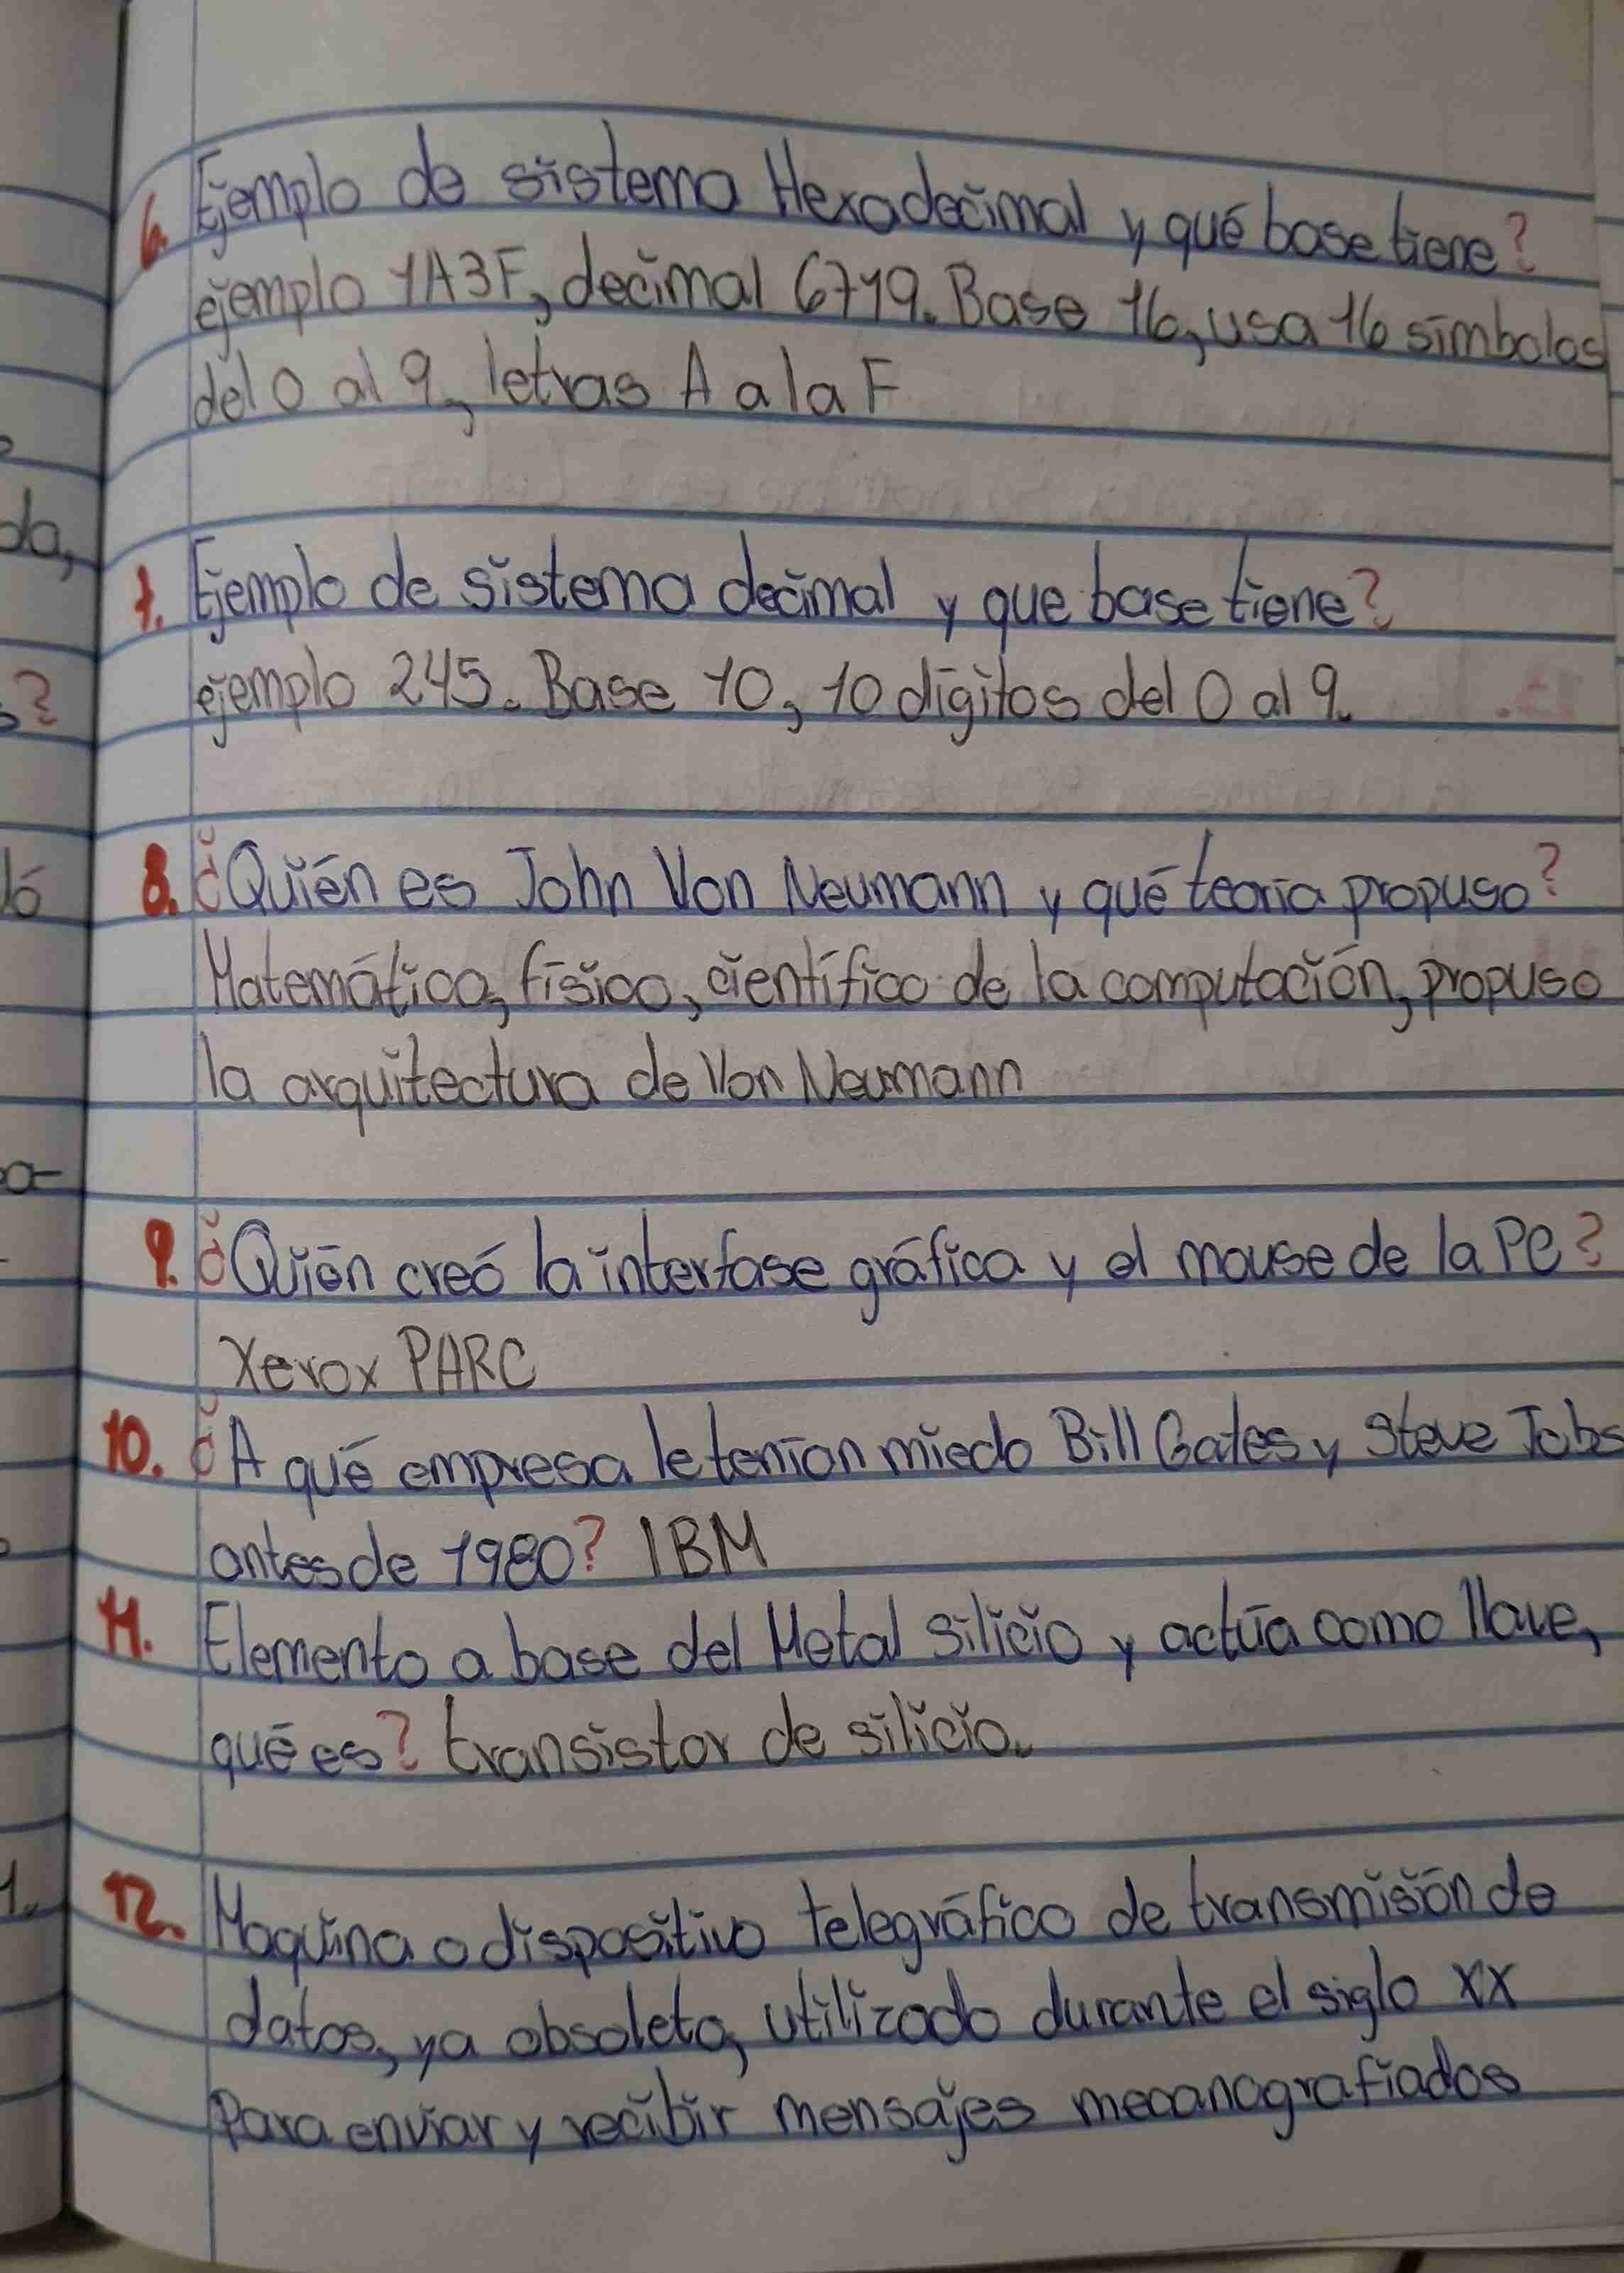 6. Ejemplo de sistema Hexadecimal y qué base tiene?
ejemplo 1A3F, decimal 6719. Base 16, usa 16 simbolos
del 0 al 9, letras A a la F
7. Ejemplo de sistema decimal y que base tiene?
ejemplo 245. Base 10, 10 digitos del 0 al 9.
8. ¿Quién es John Von Neumann y qué teoria propuso?
Matemático, físico, científico de la computación, propuso
la arquitectura de Von Neumann
9. ¿Quién creó la interfase gráfica y el mouse de la PC?
Xerox PARC
10. ¿A qué empresa le tenían miedo Bill Gates y Steve Jobs
antes de 1980? IBM
11. Elemento a base del Metal silicio y actúa como llave,
qué es? transistor de silicio.
12. Maquina o dispositivo telegráfico de transmisión de
datos, ya obsoleto, utilizado durante el siglo XX
Para enviar y recibir mensajes mecanografiados
da,
?
ló
1.